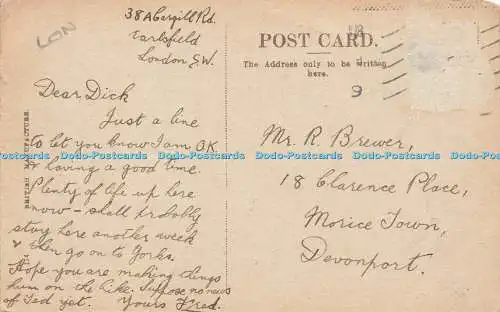 LON
38A Cargill Rd.
Earlsfield
London S.W.
Dear Dick
Just a line
to let you know I am O.K.
& having a good time.
Plenty of life up here
now - shall probably
stay here another week
& then go on to Yorks.
Hope you are making things
hum on the bike. Suppose no news
of Ted yet. Yours Fred.
BRITISH MANUFACTURE.
POST CARD.
The Address only to be written
here.
9
Mr. R. Brewer,
18 Clarence Place,
Morice Town,
Devonport.